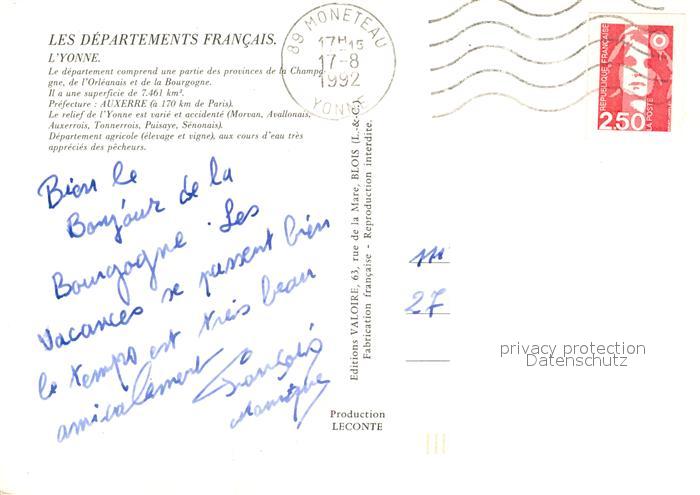 LES DÉPARTEMENTS FRANÇAIS.
L'YONNE.
Le département comprend une partie des provinces de la Champa-
gne, de l'Orléanais et de la Bourgogne.
Il a une superficie de 7.461 km².
Préfecture : AUXERRE (à 170 km de Paris).
Le relief de l'Yonne est varié et accidenté (Morvan, Avallonais,
Auxerrois, Tonnerrois, Puisaye, Sénonais).
Département agricole (élevage et vigne), aux cours d'eau très
appréciés des pêcheurs.
89 MONETEAU
17H-15
17-8
1992
YONNE
REPUBLIQUE FRANÇAISE
LA POSTE
2,50
Bien le
Bonjour de la
Bourgogne. Les
Vacances se passent bien
le temps est très beau
amicalement
Editions VALOIRE, 63, rue de la Mare, BLOIS (L.-&-C.)
Fabrication française - Reproduction interdite.
m
27
privacy protection
Datenschutz
Production
LECONTE